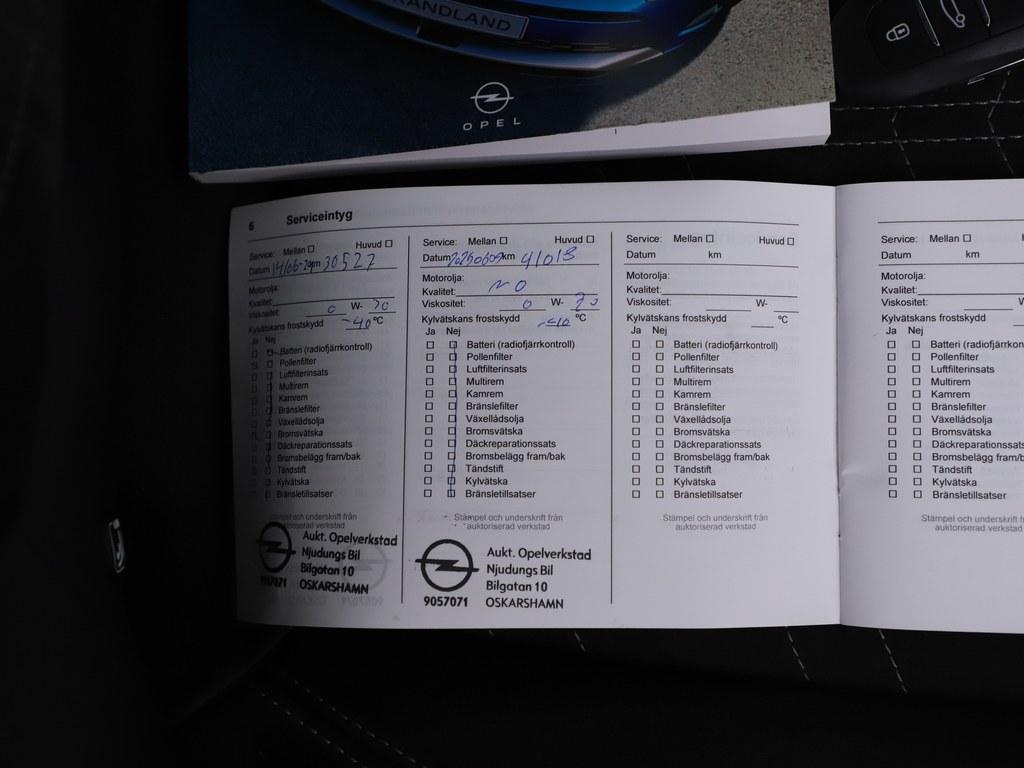 GRANDLAND
OPEL
6 Serviceintyg
Service: Mellan ☐ Huvud ☐
Datum 14/06-24 km 30527
Motorolja:
Kvalitet:
Viskositet: 0 W- 20
Kylvätskans frostskydd -40 °C
Ja Nej
Batteri (radiofjärrkontroll)
Pollenfilter
Luftfilterinsats
Multirem
Kamrem
Bränslefilter
Växellådsolja
Bromsvätska
Däckreparationssats
Bromsbelägg fram/bak
Tändstift
Kylvätska
Bränsletillsatser
Stämpel och underskrift från
auktoriserad verkstad
Aukt. Opelverkstad
Njudungs Bil
Bilgatan 10
9057071 OSKARSHAMN
Service: Mellan ☐ Huvud ☐
Datum 20250609 km 41013
Motorolja:
Kvalitet:
Viskositet: 0 W- 20
Kylvätskans frostskydd -40 °C
Ja Nej
Batteri (radiofjärrkontroll)
Pollenfilter
Luftfilterinsats
Multirem
Kamrem
Bränslefilter
Växellådsolja
Bromsvätska
Däckreparationssats
Bromsbelägg fram/bak
Tändstift
Kylvätska
Bränsletillsatser
Stämpel och underskrift från
auktoriserad verkstad
Aukt. Opelverkstad
Njudungs Bil
Bilgatan 10
9057071 OSKARSHAMN
Service: Mellan ☐ Huvud ☐
Datum km
Motorolja:
Kvalitet:
Viskositet: W-
Kylvätskans frostskydd °C
Ja Nej
Batteri (radiofjärrkontroll)
Pollenfilter
Luftfilterinsats
Multirem
Kamrem
Bränslefilter
Växellådsolja
Bromsvätska
Däckreparationssats
Bromsbelägg fram/bak
Tändstift
Kylvätska
Bränsletillsatser
Stämpel och underskrift från
auktoriserad verkstad
Service: Mellan ☐
Datum km
Motorolja:
Kvalitet:
Viskositet: W-
Kylvätskans frostskydd
Ja Nej
Batteri (radiofjärrkon
Pollenfilter
Luftfilterinsats
Multirem
Kamrem
Bränslefilter
Växellådsolja
Bromsvätska
Däckreparationssats
Bromsbelägg fram/b
Tändstift
Kylvätska
Bränsletillsatser
Stämpel och underskrift från
auktoriserad verkstad